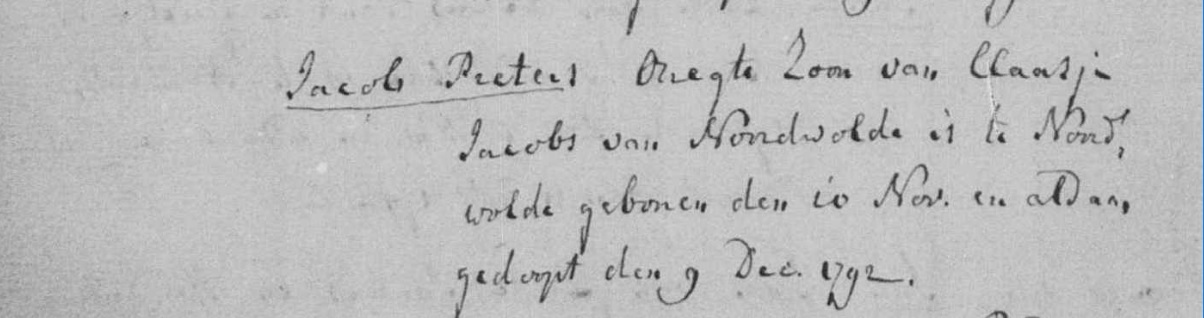 Jacob Peeters Onegte Zoon van Claasje
Jacobs van Noordwolde is te Noord,
wolde geboren den 10 Nov. en aldaar,
gedoopt den 9 Dec. 1792.